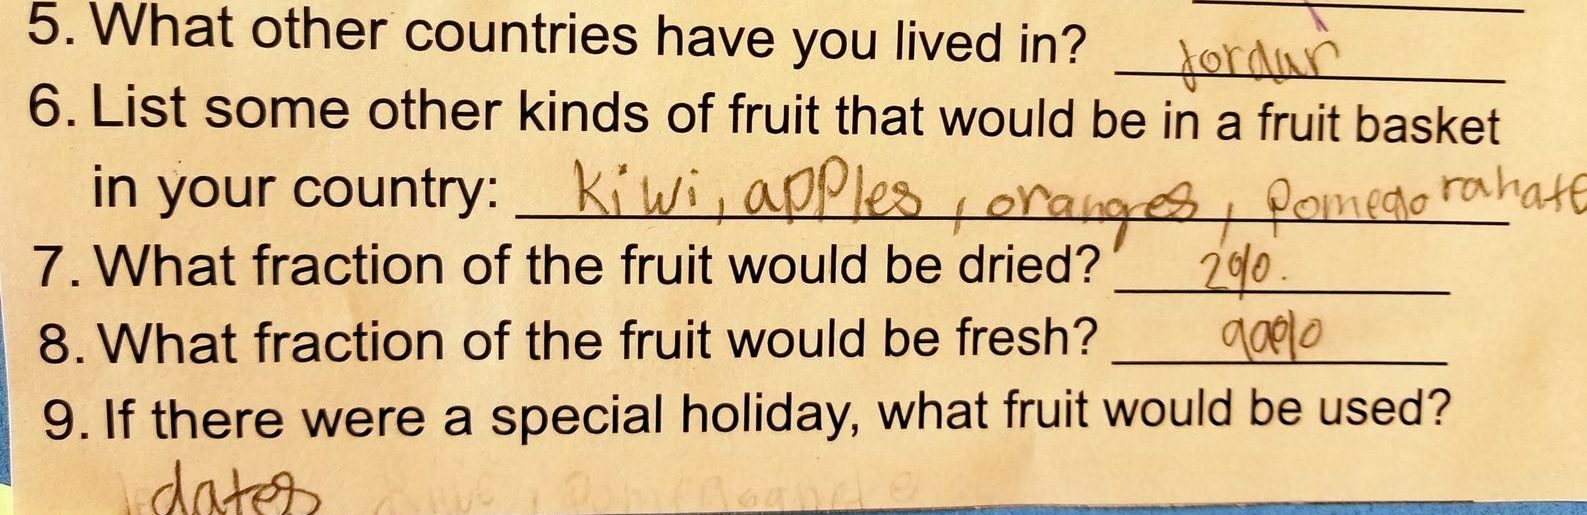 5. What other countries have you lived in? Jordan
6. List some other kinds of fruit that would be in a fruit basket
in your country: kiwi, apples, oranges, Pomegorahate
7. What fraction of the fruit would be dried? 2%.
8. What fraction of the fruit would be fresh?
9. If there were a special holiday, what fruit would be used?
dates